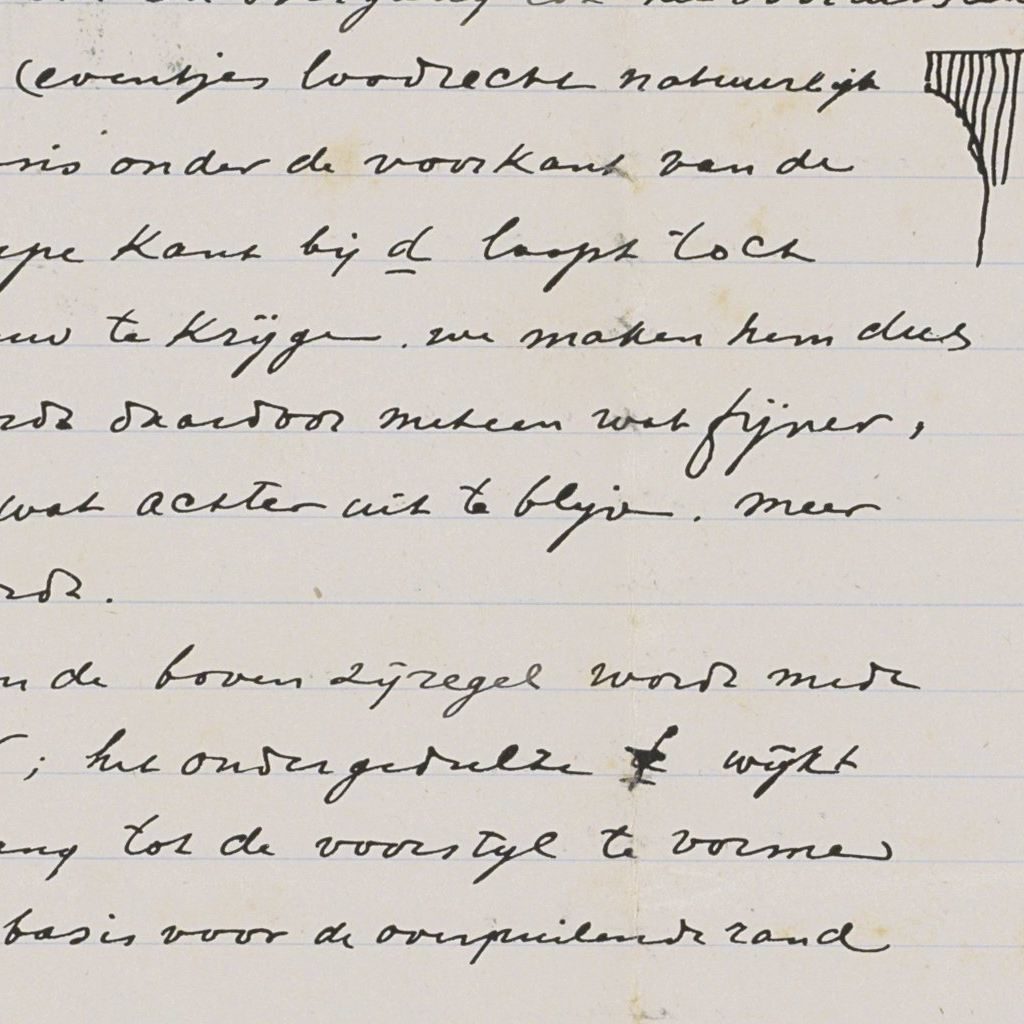 (eventjes loodrecht natuurlijk
onder de voorkant van de
kant bij d loopt toch
te krijgen. we maken hem dus
daardoor meteen wat fijner,
wat achter uit te blijven. meer
de boven zijregel wordt mede
; het ondergedeelte wijkt
tot de voorstijl te vormen
basis voor de overpuilende rand